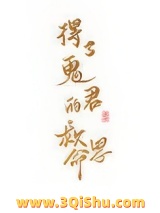 得了鬼君的救命恩
www.3Qishu.com